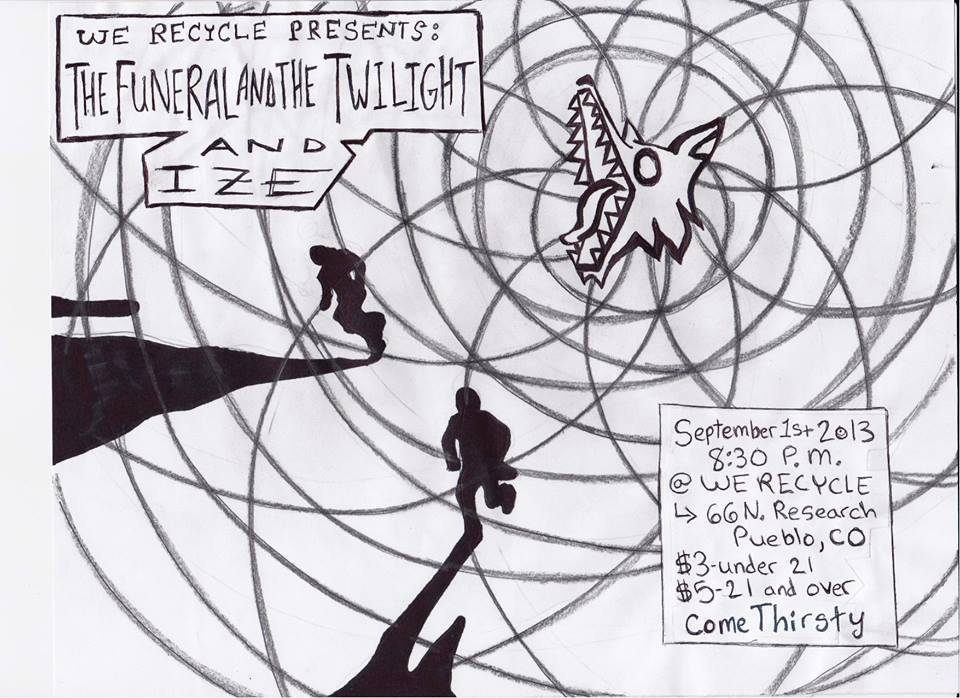 WE RECYCLE PRESENTS:
THE FUNERAL AND THE TWILIGHT
AND
IZE
September 1st 2013
8:30 P.M.
@ WE RECYCLE
↳ 66 N. Research
Pueblo, CO
$3-under 21
$5-21 and over
come Thirsty